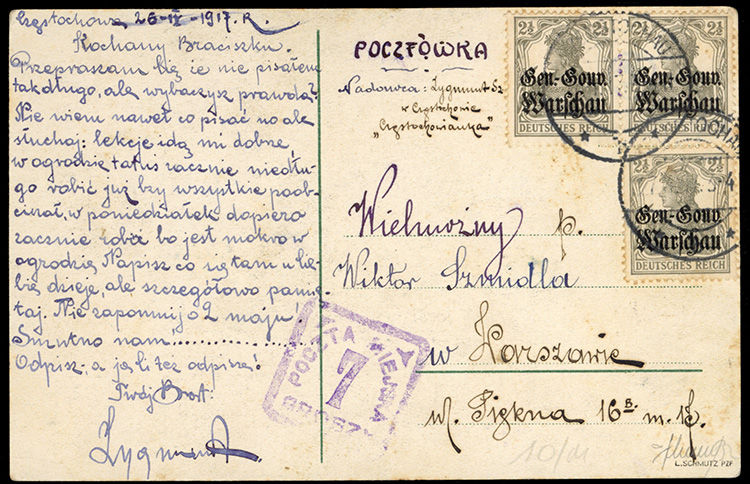 Częstochowa 26-IV-1917.R.
Kochany Braciszku.
Przepraszam Cię że nie pisałem
tak długo, ale wybaczysz prawda?
Nie wiem nawet co pisać no ale
słuchaj: lekcje idą mi dobrze
w ogrodzie tatuś zacznie niedłu-
go robić już bzy wszystkie poob-
cinał, w poniedziałek dopiero
zacznie robić bo jest mokro w
ogrodzie. Napisz co się tam u Cie-
bie dzieje, ale szczegółowo pamię-
taj. Nie zapomnij o 2 maju.
Smutno nam
Odpisz - a ja Ci też odpiszę!
Twój Brat:
Zygmunt
POCZTÓWKA
Nadawca: Zygmunt Sz
w Częstochowie
"Częstochowianka"
Wielmożny p.
Wiktor Szmidla
w Warszawie
ul. Piękna 16 m.
2½ 2½
Gen.-Gouv.
Warschau
DEUTSCHES REICH
2½ 2½
Gen.-Gouv.
Warschau
DEUTSCHES REICH
2½ 2½
Gen.-Gouv.
Warschau
DEUTSCHES REICH
POCZTA MIEJSKA
7
GROSZY
10/11
L.SCHMUTZ PZF